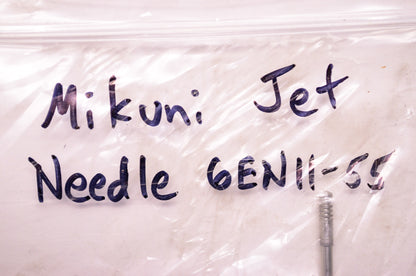 Mikuni Jet
Needle 6EN11-55